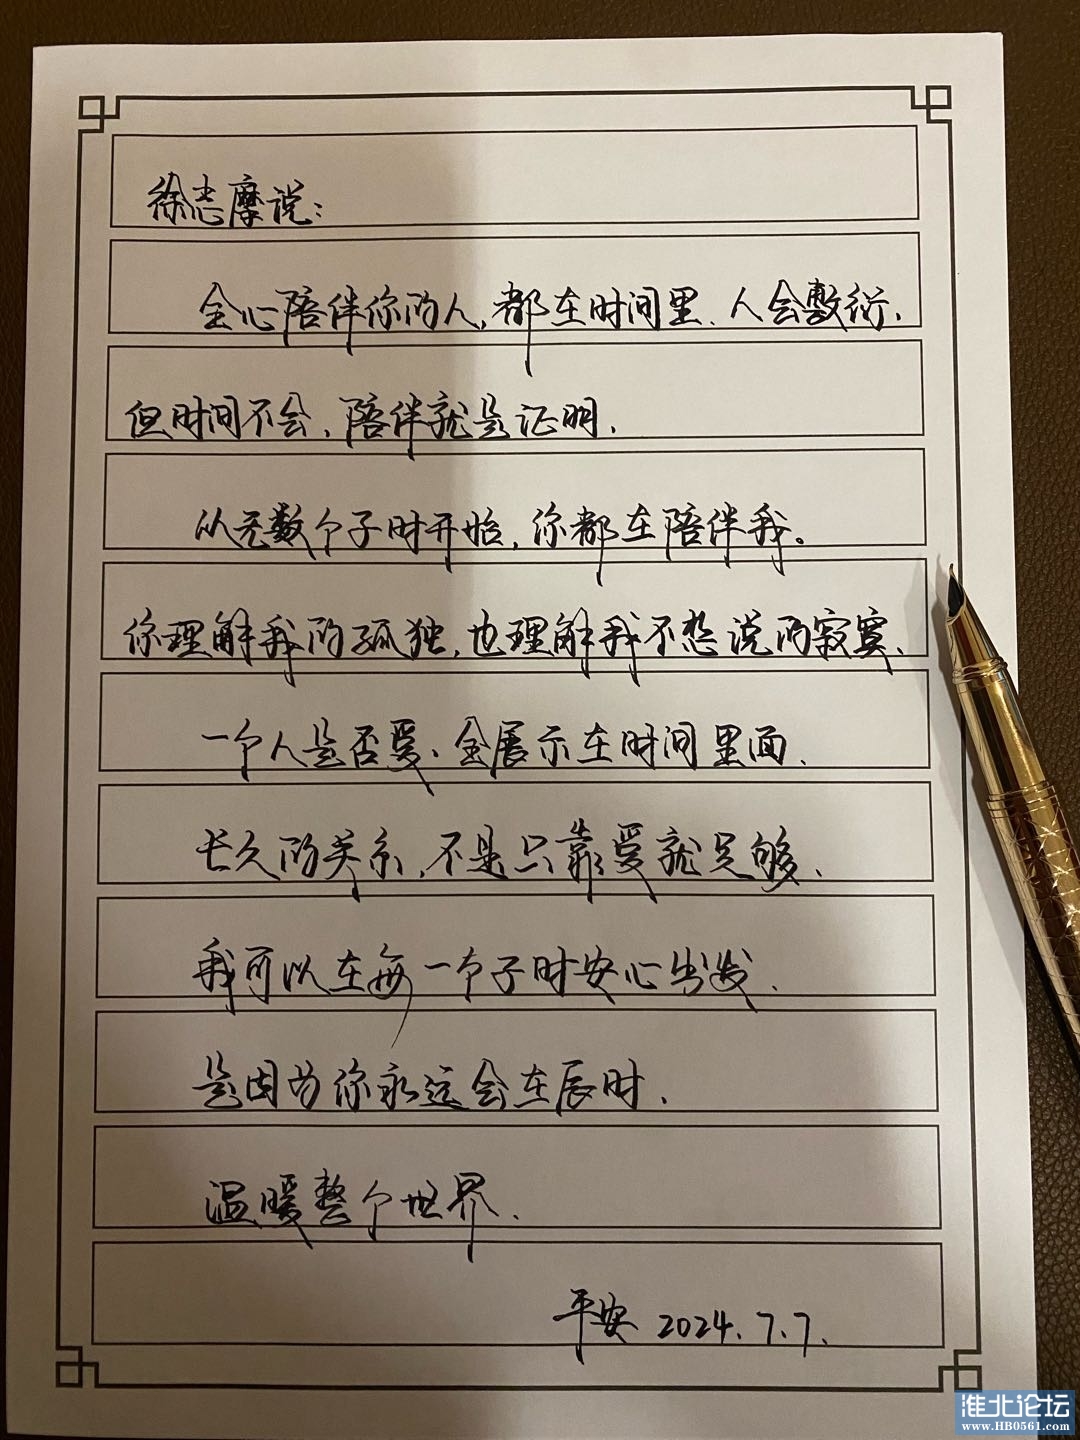 徐志摩说：
全心陪伴你的人，都在时间里、人会敷衍，
但时间不会，陪伴就是证明．
从无数个子时开始，你都在陪伴我。
你理解我的孤独，也理解我不想说的寂寞、
一个人是否爱、全展示在时间里面、
长久的关系，不是只靠爱就足够、
我可以在每一个子时安心出发、
是因为你永远会在辰时．
温暖整个世界、
平安 2024.7.7.
淮北论坛
www.HB0561.com